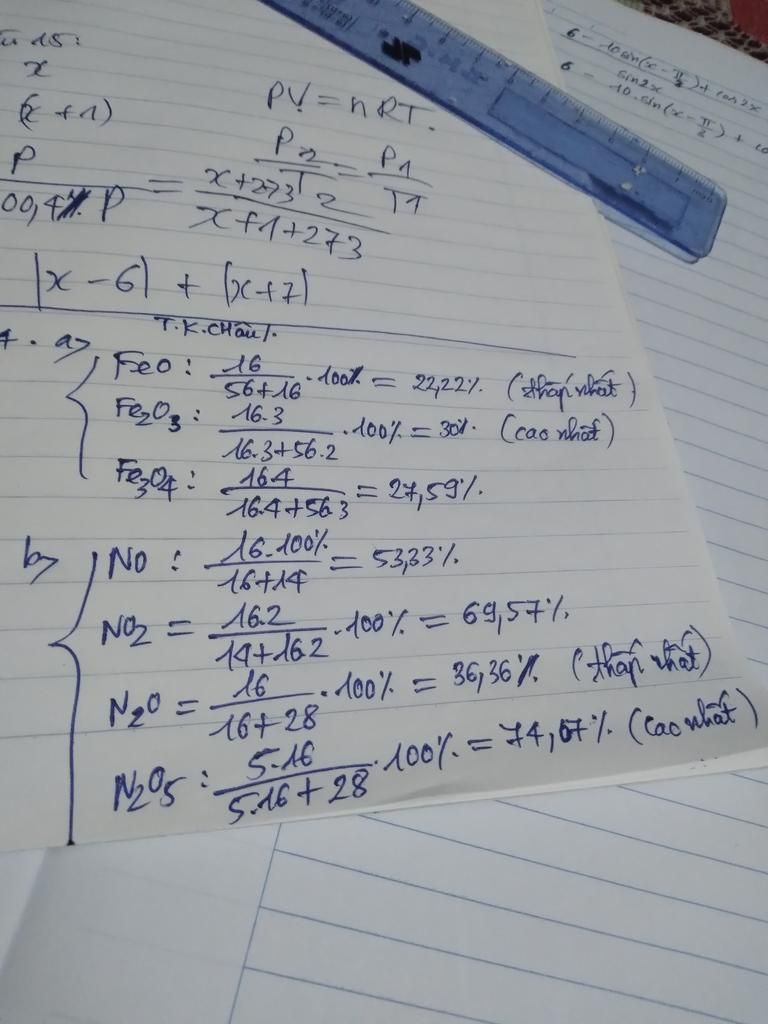 15:
x
(x + 1)
PV = nRT.
P2/T2 = P1/T1
P/00,4% P = x+273/x+1+273
|x - 6| + |x+7|
T.K.CHâu%
a>
FeO : 16/56+16 . 100% = 22,22%. (thấp nhất)
Fe2O3 : 16.3/16.3+56.2 . 100% = 30%. (cao nhất)
Fe3O4 : 16.4/16.4+56.3 = 27,59%.
b> NO : 16.100%/16+14 = 53,33%.
NO2 = 16.2/14+16.2 . 100% = 69,57%.
N2O = 16/16+28 . 100% = 36,36%. (thấp nhất)
N2O5 : 5.16/5.16+28 . 100% = 74,07%. (cao nhất)
6 - 10sin(x - π/2) + cos2x
sin2x
6 - 10.sin(x - π/2) +